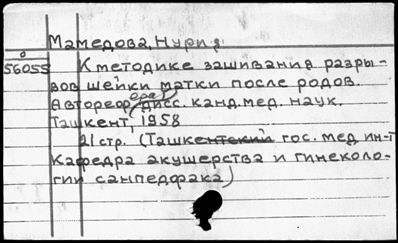 Мамедова, Нурия
0
56055
К методике зашивания разры-
вов шейки матки после родов.
Автореферат дисс. канд. мед. наук.
Ташкент, 1958
21 стр. (Ташкентский гос. мед ин-т
Кафедра акушерства и гинеколо-
гии санпедфака)